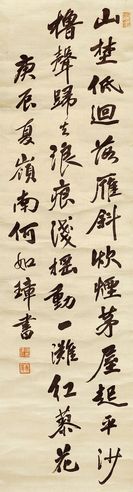 山埜低迴落雁斜炊煙茅屋起平沙
櫓聲歸去浪痕淺搖動一灘紅蓼花
庚辰夏嶺南何如璋書